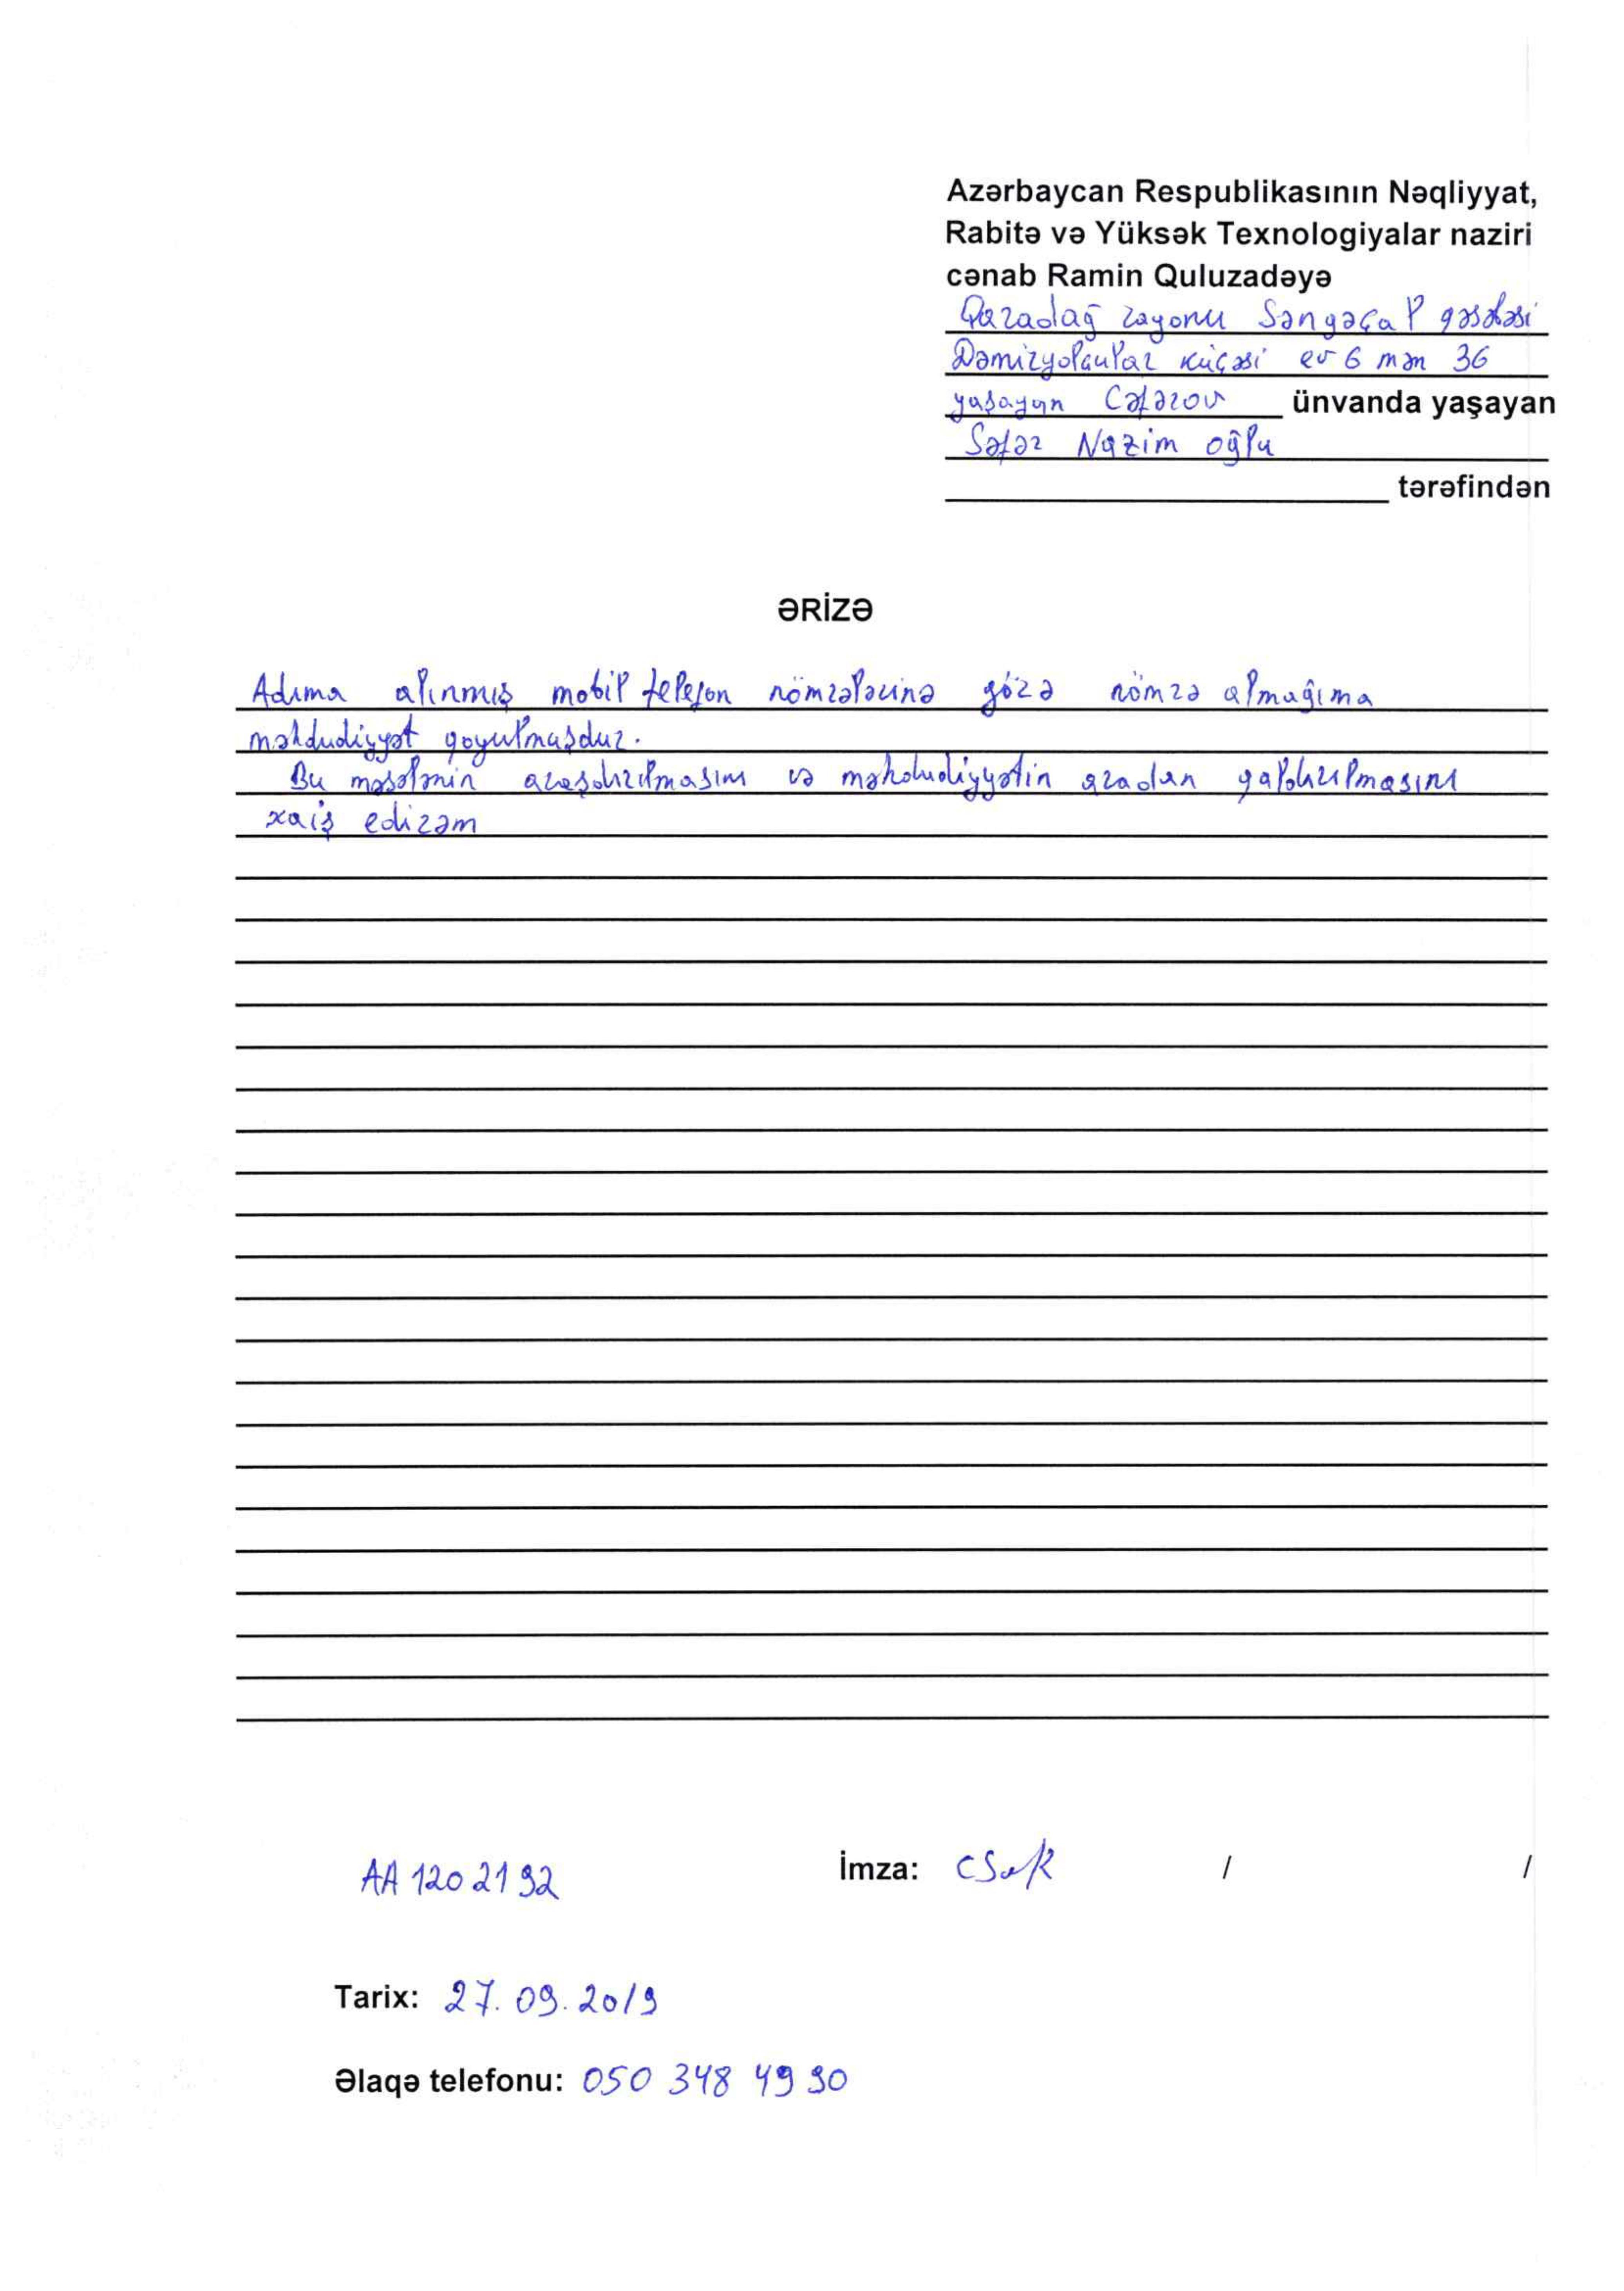 Azərbaycan Respublikasının Nəqliyyat,
Rabitə və Yüksək Texnologiyalar naziri
cənab Ramin Quluzadəyə
Qaradağ rayonu Səngəçal qəsəbəsi
Dəmiryolçular küçəsi ev 6 mən 36
yaşayan Cəfərov ünvanda yaşayan
Səfər Nazim oğlu
tərəfindən
ƏRİZƏ
Adıma alınmış mobil telefon nömrələrinə görə nömrə almağıma
məhdudiyyət qoyulmuşdur.
Bu məsələnin araşdırılmasını və məhdudiyyətin aradan qaldırılmasını
xaiş edirəm
AA 1202192
İmza: / /
Tarix: 27.09.2019
Əlaqə telefonu: 050 348 49 90